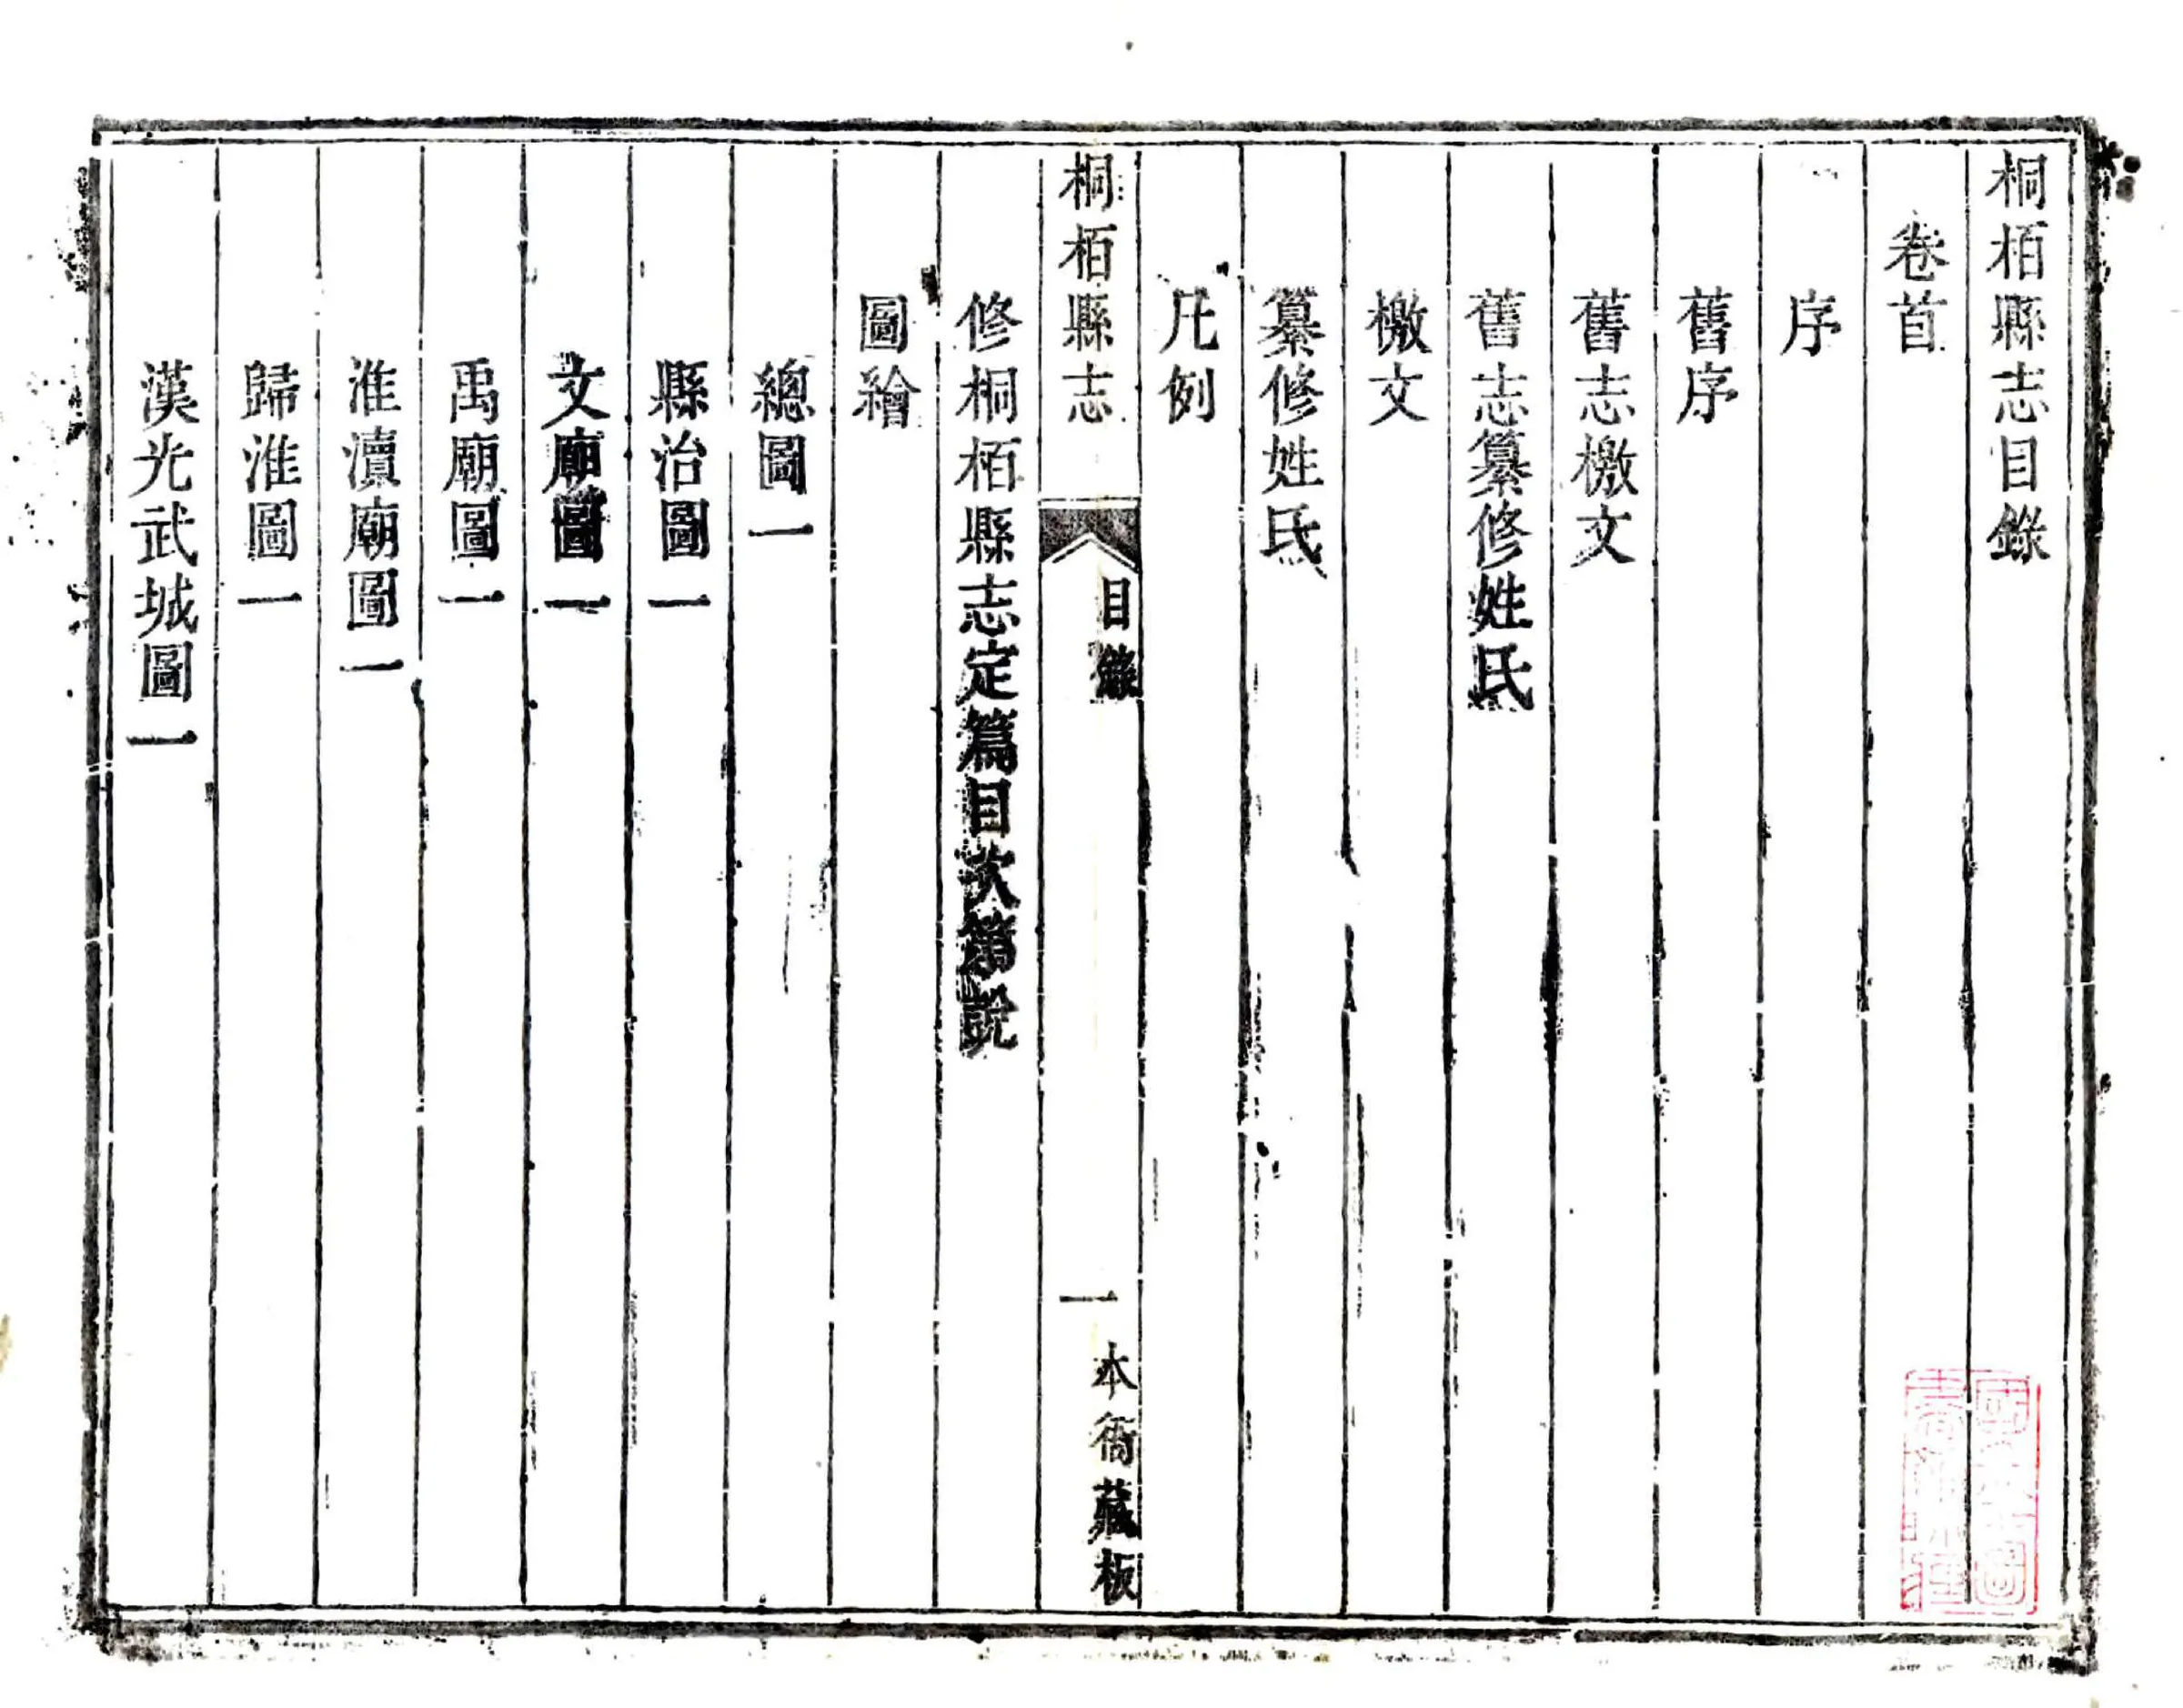 桐栢縣志目錄
卷首
序
舊序
舊志檄文
舊志纂修姓氏
檄文
纂修姓氏
凡例
桐栢縣志
目錄
一
本衙藏板
修桐栢縣志定篇目次第說
圖繪
總圖一
縣治圖一
文廟圖一
禹廟圖一
淮瀆廟圖一
歸淮圖一
漢光武城圖一